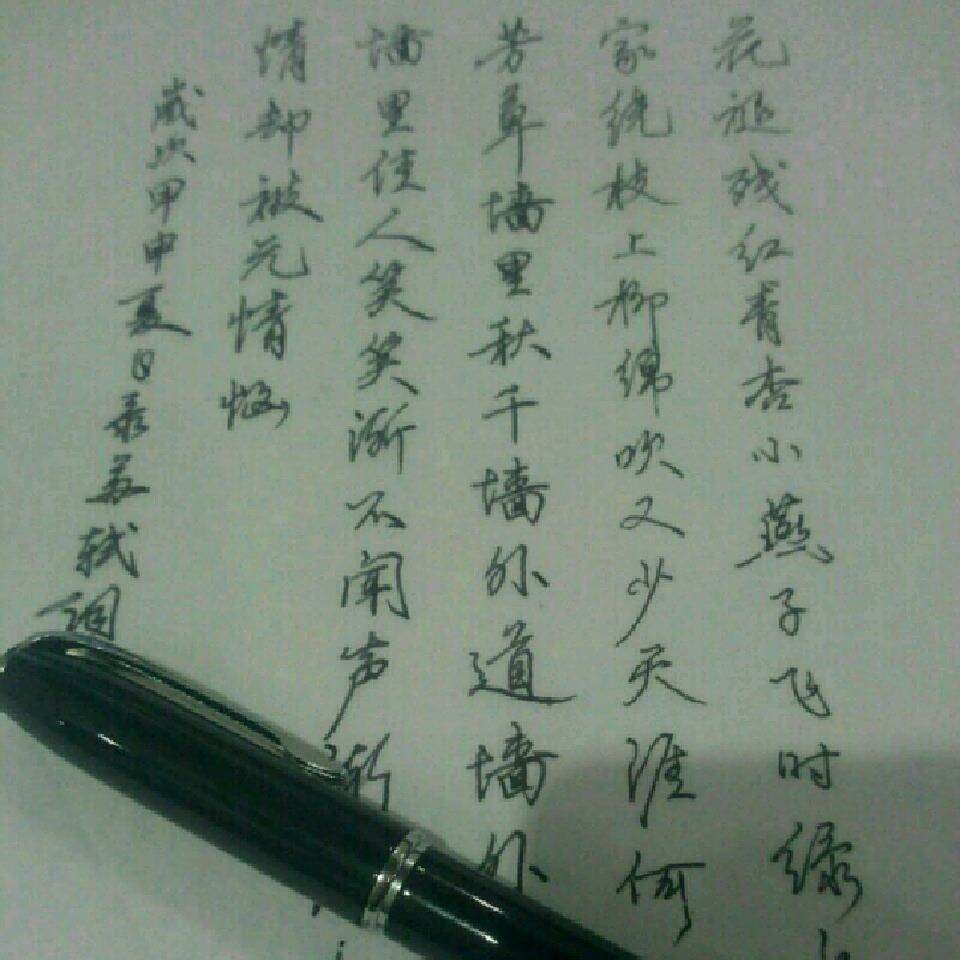 花褪残红青杏小燕子飞时绿
家绕枝上柳绵吹又少天涯何
芳草墙里秋千墙外道墙外
墙里佳人笑笑渐不闻声渐
情却被无情恼
歲次甲申夏日录苏轼词